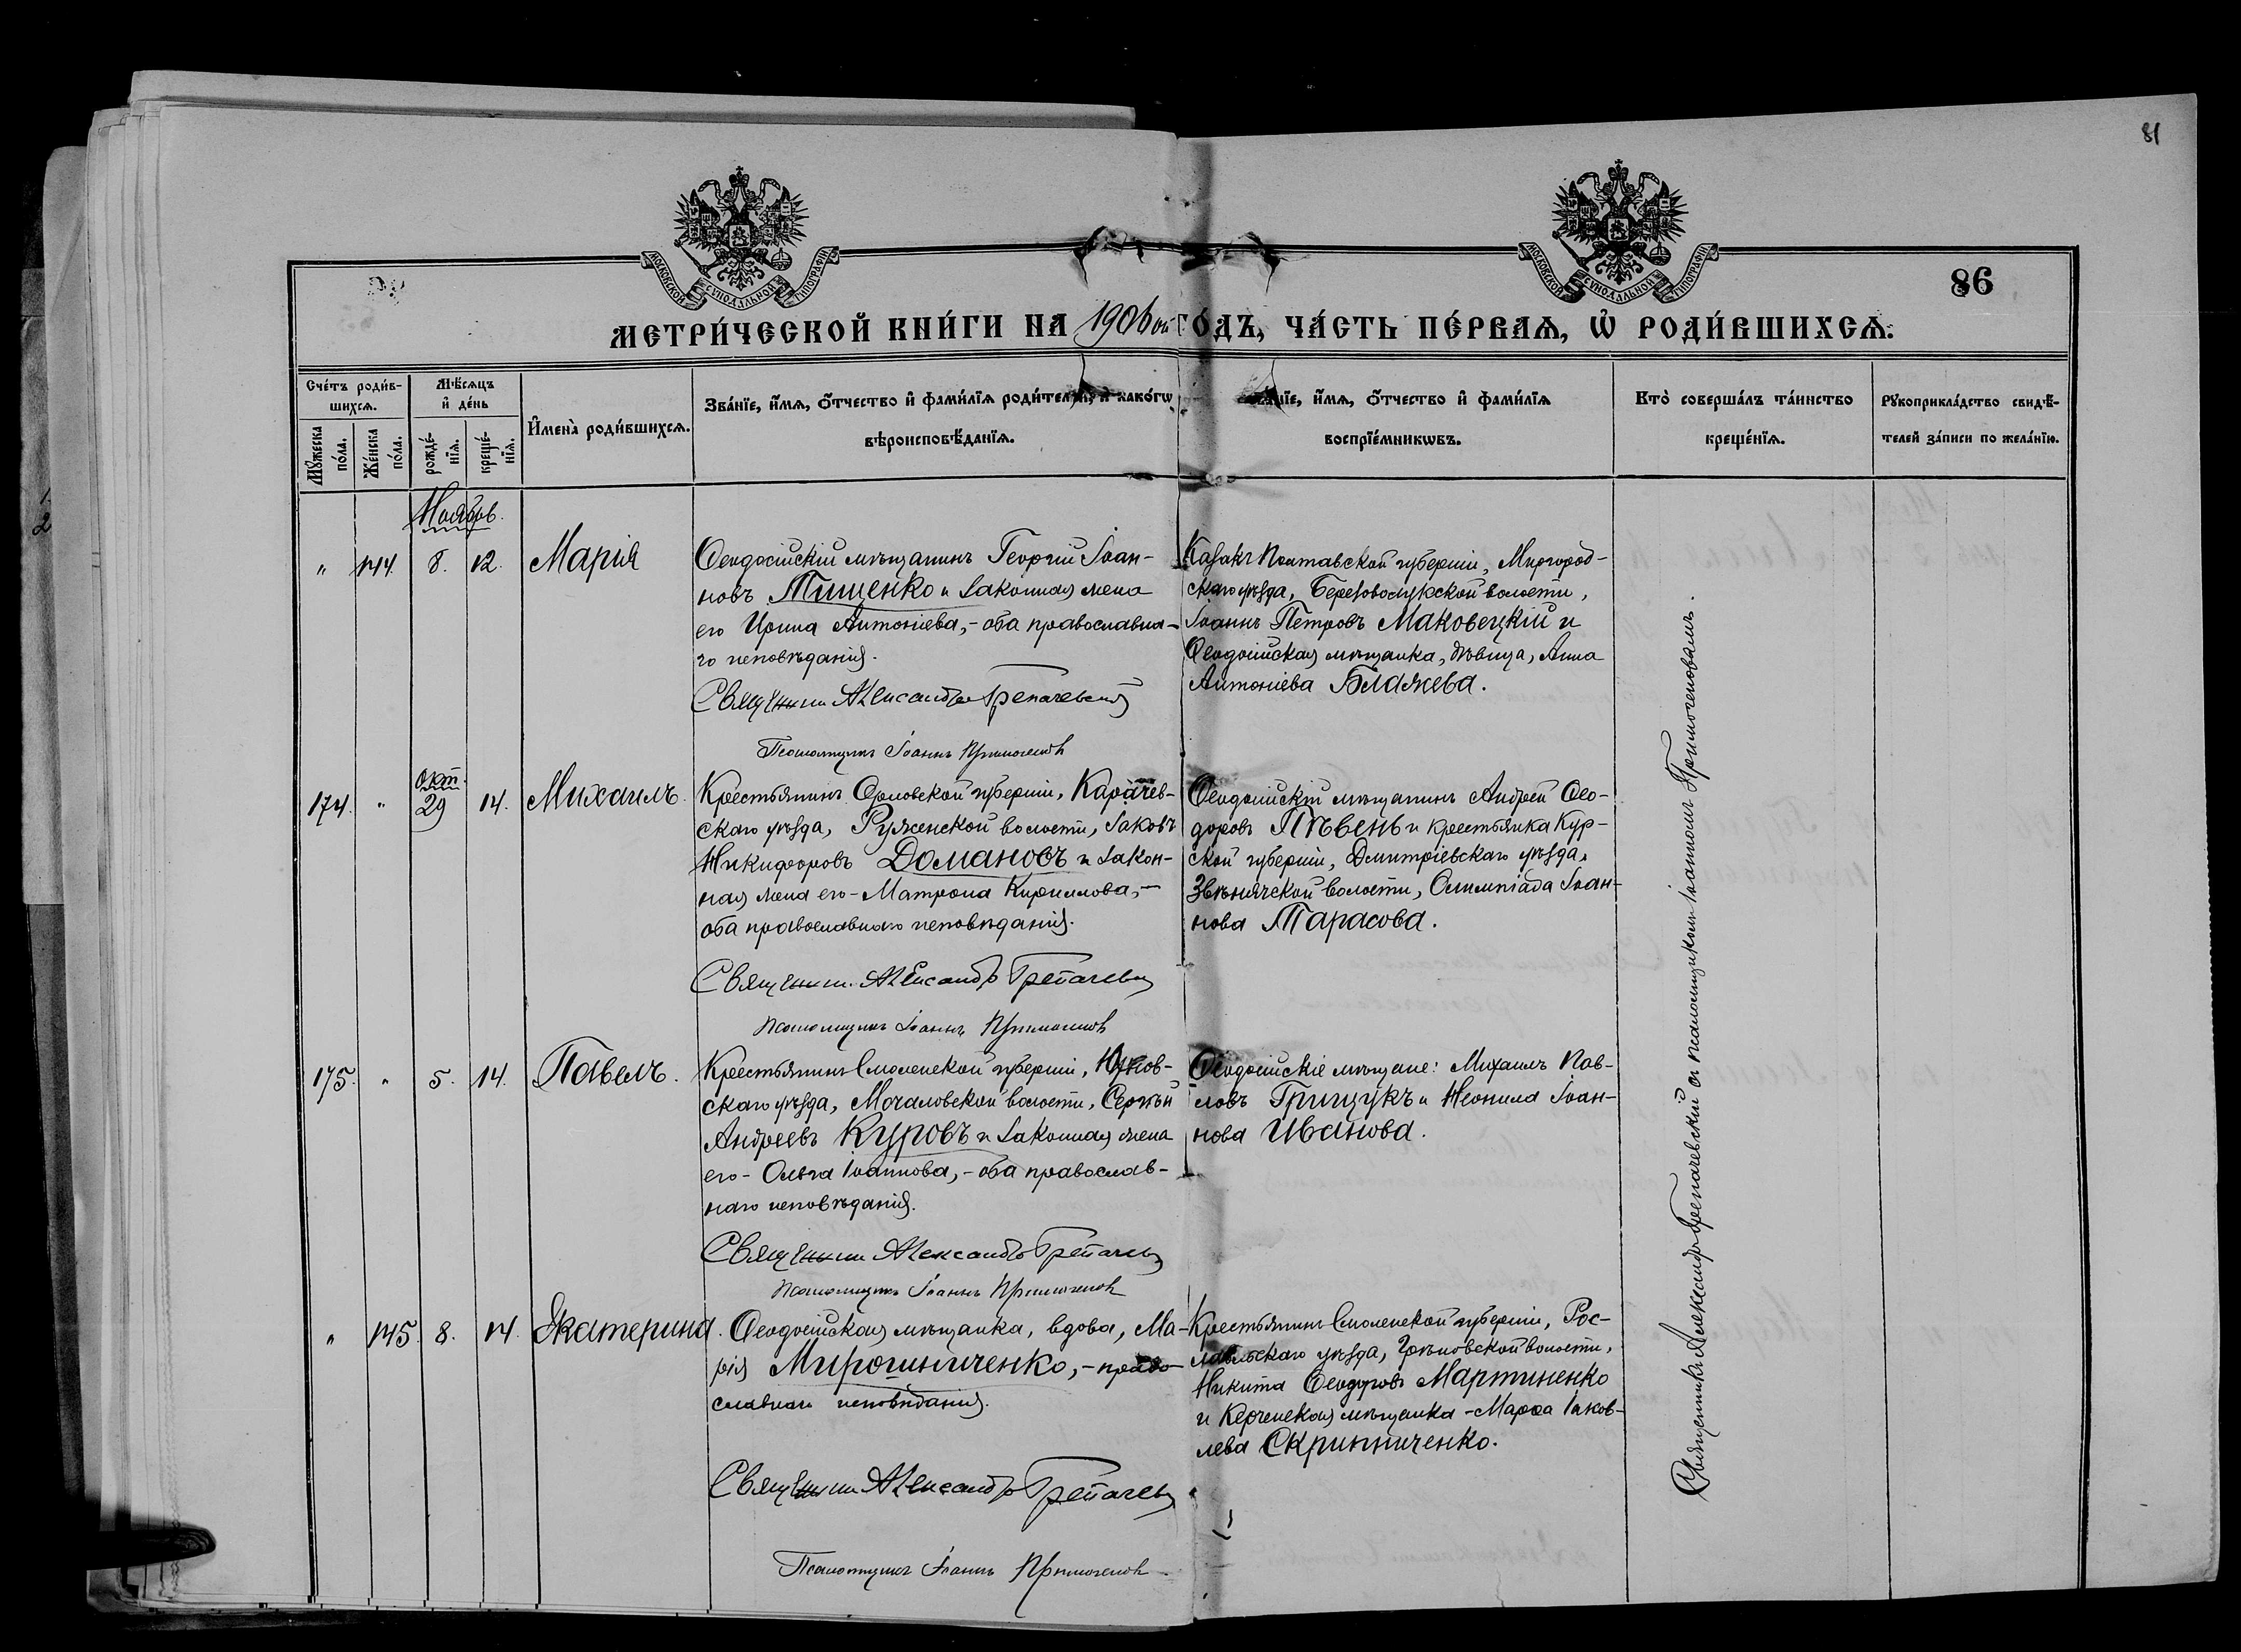 81
МОСКОВСКОЙ СѴНОДАЛЬНОЙ ТИПОГРАФІИ
МОСКОВСКОЙ СѴНОДАЛЬНОЙ ТИПОГРАФІИ
86
МЕТРИ́ЧЕСКОЙ КНИ́ГИ НА 1906 ой ГО́ДЪ, ЧА́СТЬ ПЕ́РВАѦ, Ѡ҆ РОДИ́ВШИХСѦ.
Сче́тъ роди́в-
шихсѧ.
Мѣ́сѧцъ
и҆ де́нь
Мꙋ́жеска по́ла.
Же́нска по́ла.
рожде́-нїѧ.
креще́-нїѧ.
И҆мена̀ роди́вшихсѧ.
Зва́нїе, и҆́мѧ, ѻ҆́тчество и҆ фами́лїѧ роди́телей, и҆ како́гѡ
вѣроисповѣ́данїѧ.
Зва́нїе, и҆́мѧ, ѻ҆́тчество и҆ фами́лїѧ
воспрїе́мникѡвъ.
Кто̀ соверша́лъ та́инство
креще́нїѧ.
Рꙋкоприкла́дство свидѣ́-
телей за́писи по жела́нїю.
Ноябрь.
" 144. 8. 12. Марія
Ѳеодосійскій мѣщанинъ Георгій Іоан-
новъ Тищенко и законная жена
его Ирина Антоніева,- оба православна-
го исповѣданія.
Священник Александръ Трепачевскій
Псаломщикъ Іоаннъ Примогеновъ
Казакъ Полтавской губерніи, Миргород-
скаго уѣзда, Березоволукской волости,
Іоаннъ Петровъ Маковецкій и
Ѳеодосійская мѣщанка, дѣвица, Анна
Антоніева Блажева.
174. " Окт. 29 14. Михаилъ.
Крестьянинъ Орловской губерніи, Карачев-
скаго уѣзда, Руженской волости, Іаковъ
Никифоровъ Домановъ и закон-
ная жена его - Матрона Кириллова,-
оба православнаго исповѣданія.
Священник Александръ Трепачевскій
Псаломщикъ Іоаннъ Примогеновъ
Ѳеодосійскій мѣщанинъ Андрей Ѳео-
доровъ Пѣвень и крестьянка Кур-
ской губерніи, Дмитріевскаго уѣзда,
волости, Олимпіада Іоан-
нова Тарасова.
175. " 5. 14. Павелъ.
Крестьянинъ Смоленской губерніи, Юхнов-
скаго уѣзда, Мочаловской волости, Сергѣй
Андреевъ Куровъ и законная жена
его - Ольга Іоаннова,- оба православ-
наго исповѣданія.
Священник Александръ Трепачевскій
Псаломщикъ Іоаннъ Примогеновъ
Ѳеодосійскіе мѣщане: Михаилъ Пав-
ловъ Грищукъ и Неонила Іоан-
нова Иванова.
" 145. 8. 14. Екатерина.
Ѳеодосійская мѣщанка, вдова, Ма-
рія Мирошниченко,- право-
славнаго исповѣданія.
Священник Александръ Трепачевскій
Псаломщикъ Іоаннъ Примогеновъ
Крестьянинъ Смоленской губерніи, Рос-
лавльскаго уѣзда, волости,
Никита Ѳеодоровъ Мартиненко
и Керченская мѣщанка - Марѳа Іаков-
лева Скрипниченко.
Священникъ Александръ Трепачевскій съ псаломщикомъ Іоанномъ Примогеновымъ.